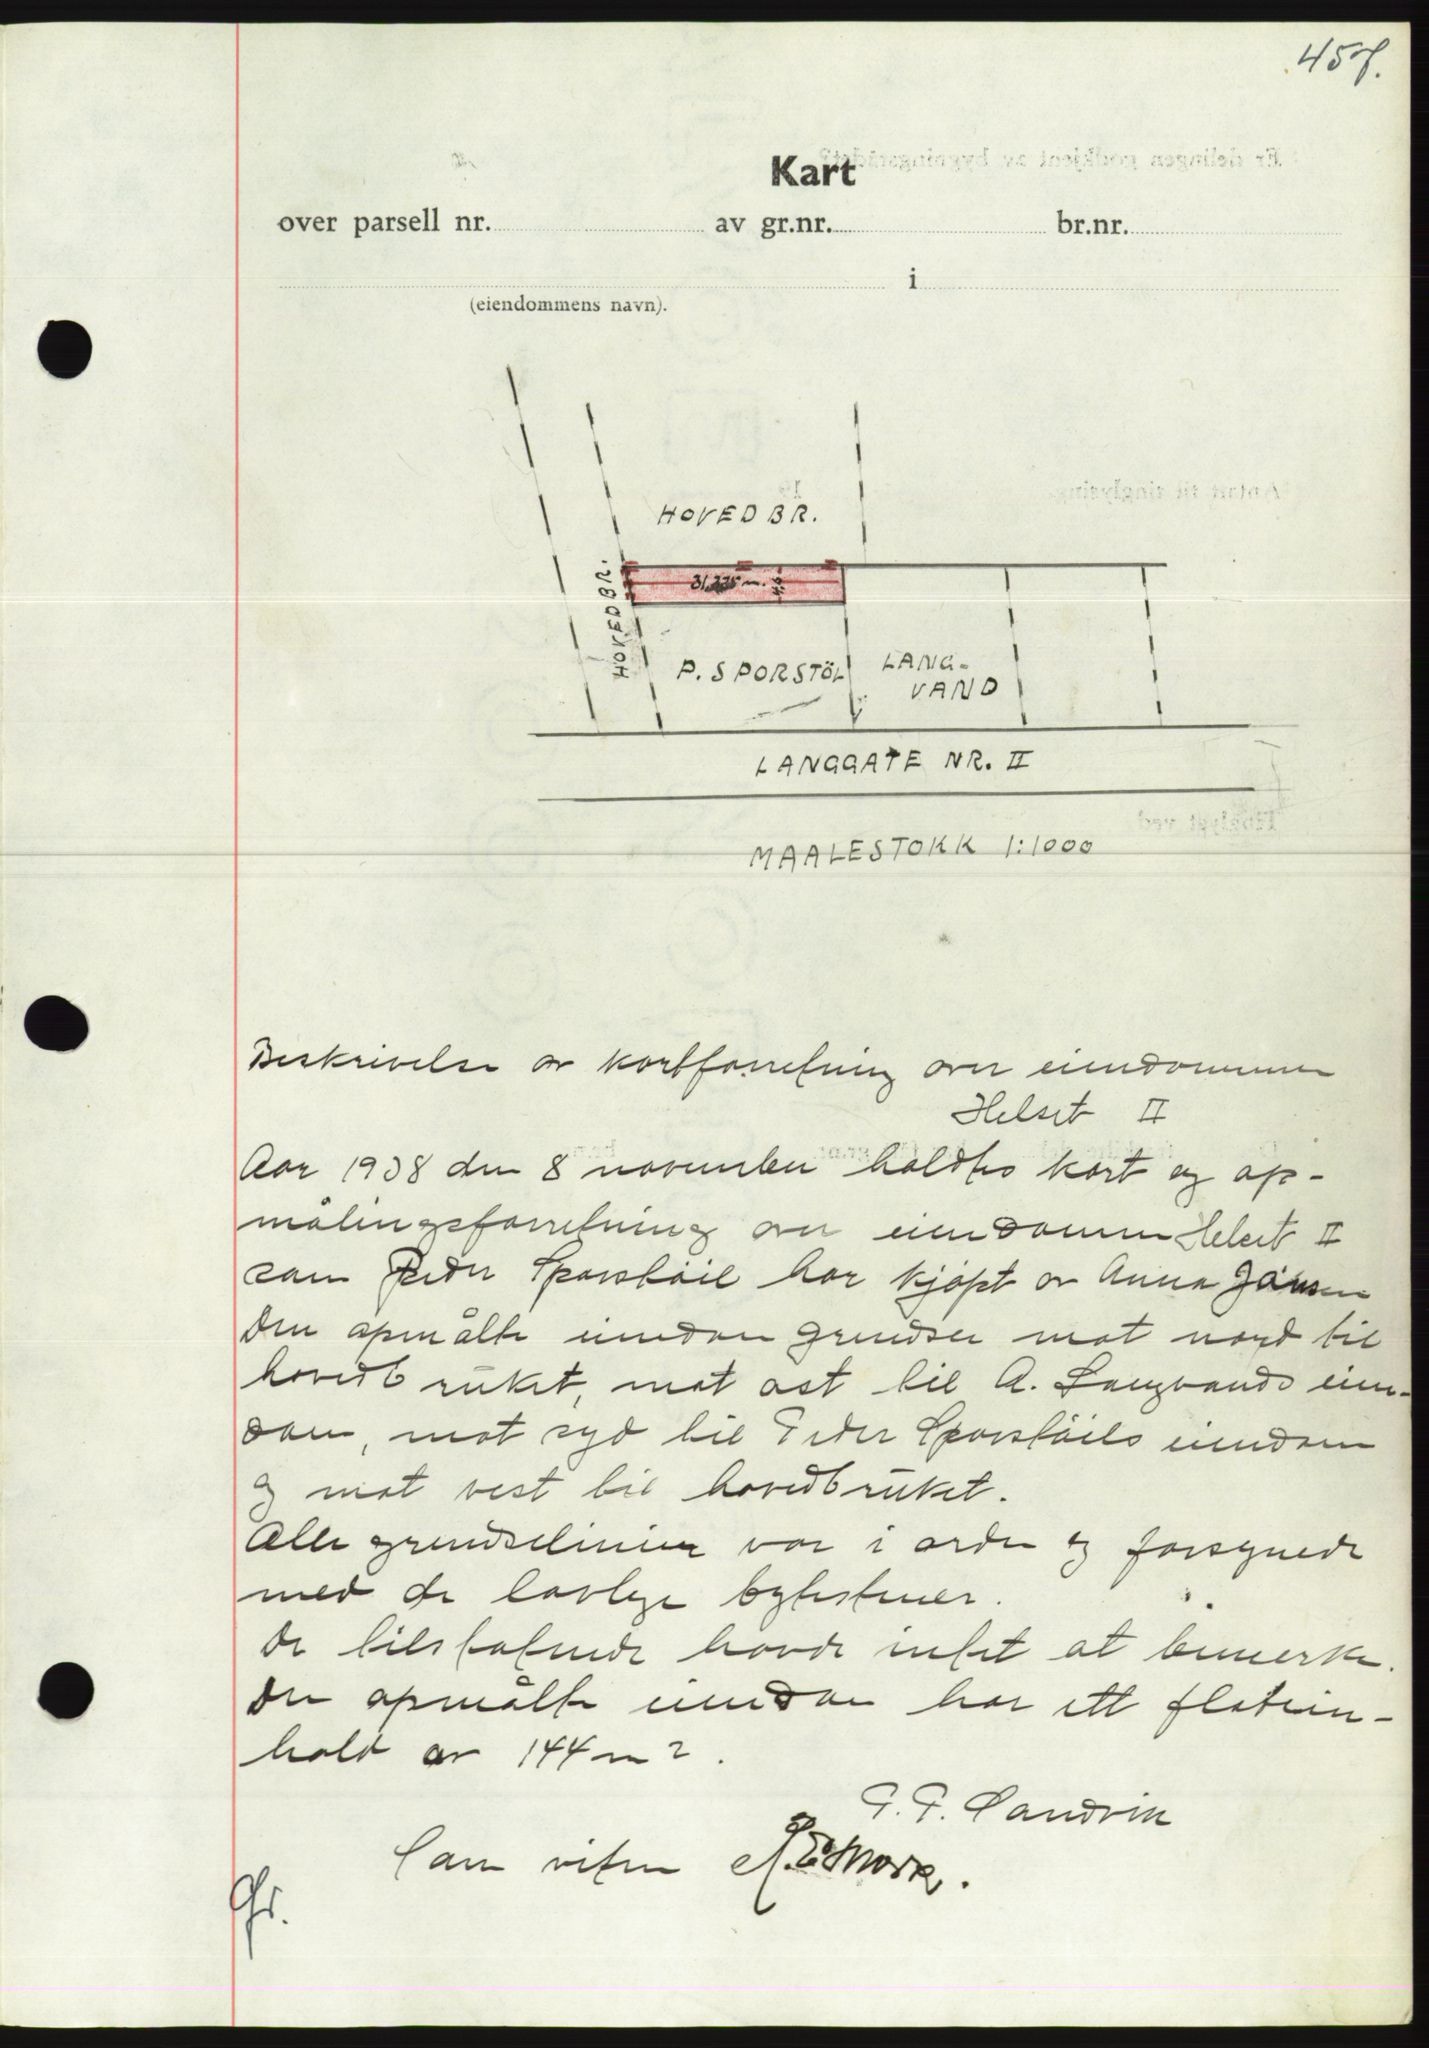 457.
Kart
over parsell nr. av gr.nr. br.nr.
i
(eiendommens navn).
HOVEDBR.
HOVEDBR.
P. SPORSTÖL
LANG-
VAND
LANGGATE NR. II
MAALESTOKK 1:1000
Beskrivelse av kartforretning over eiendommen
Helset II
Aar 1938 den 8 november holdtes kart og op-
målingsforretning over eiendommen Helset II
som Peder Sporstöil har kjöpt av Anna Jansen
Den opmålte eiendom grendser mot nord til
hovedbrüket, mot ost til A. Langvands eien-
dom, mot syd til Peder Sporstöils eiendom
og mot vest til hovedbrüket.
Alle grendselinier var i orden og forsynede
med de lovlige bytestener.
De tilstotende havde intet at bemerke.
Den opmålte eiendom har ett flatein-
hold av 144 m2.
Sandvik
Som vitne